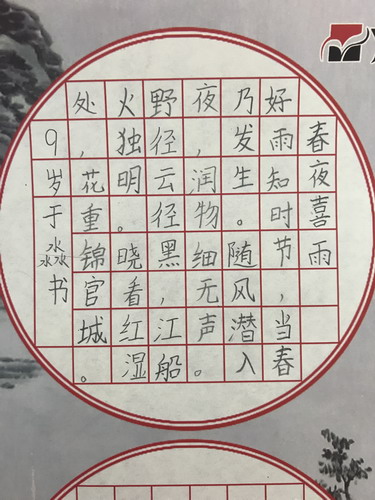 春夜喜雨
好雨知时节,当春
乃发生。随风潜入
夜,润物细无声。
野径云径黑,江船
火独明。晓看红湿
处,花重锦官城。
9岁于淼书